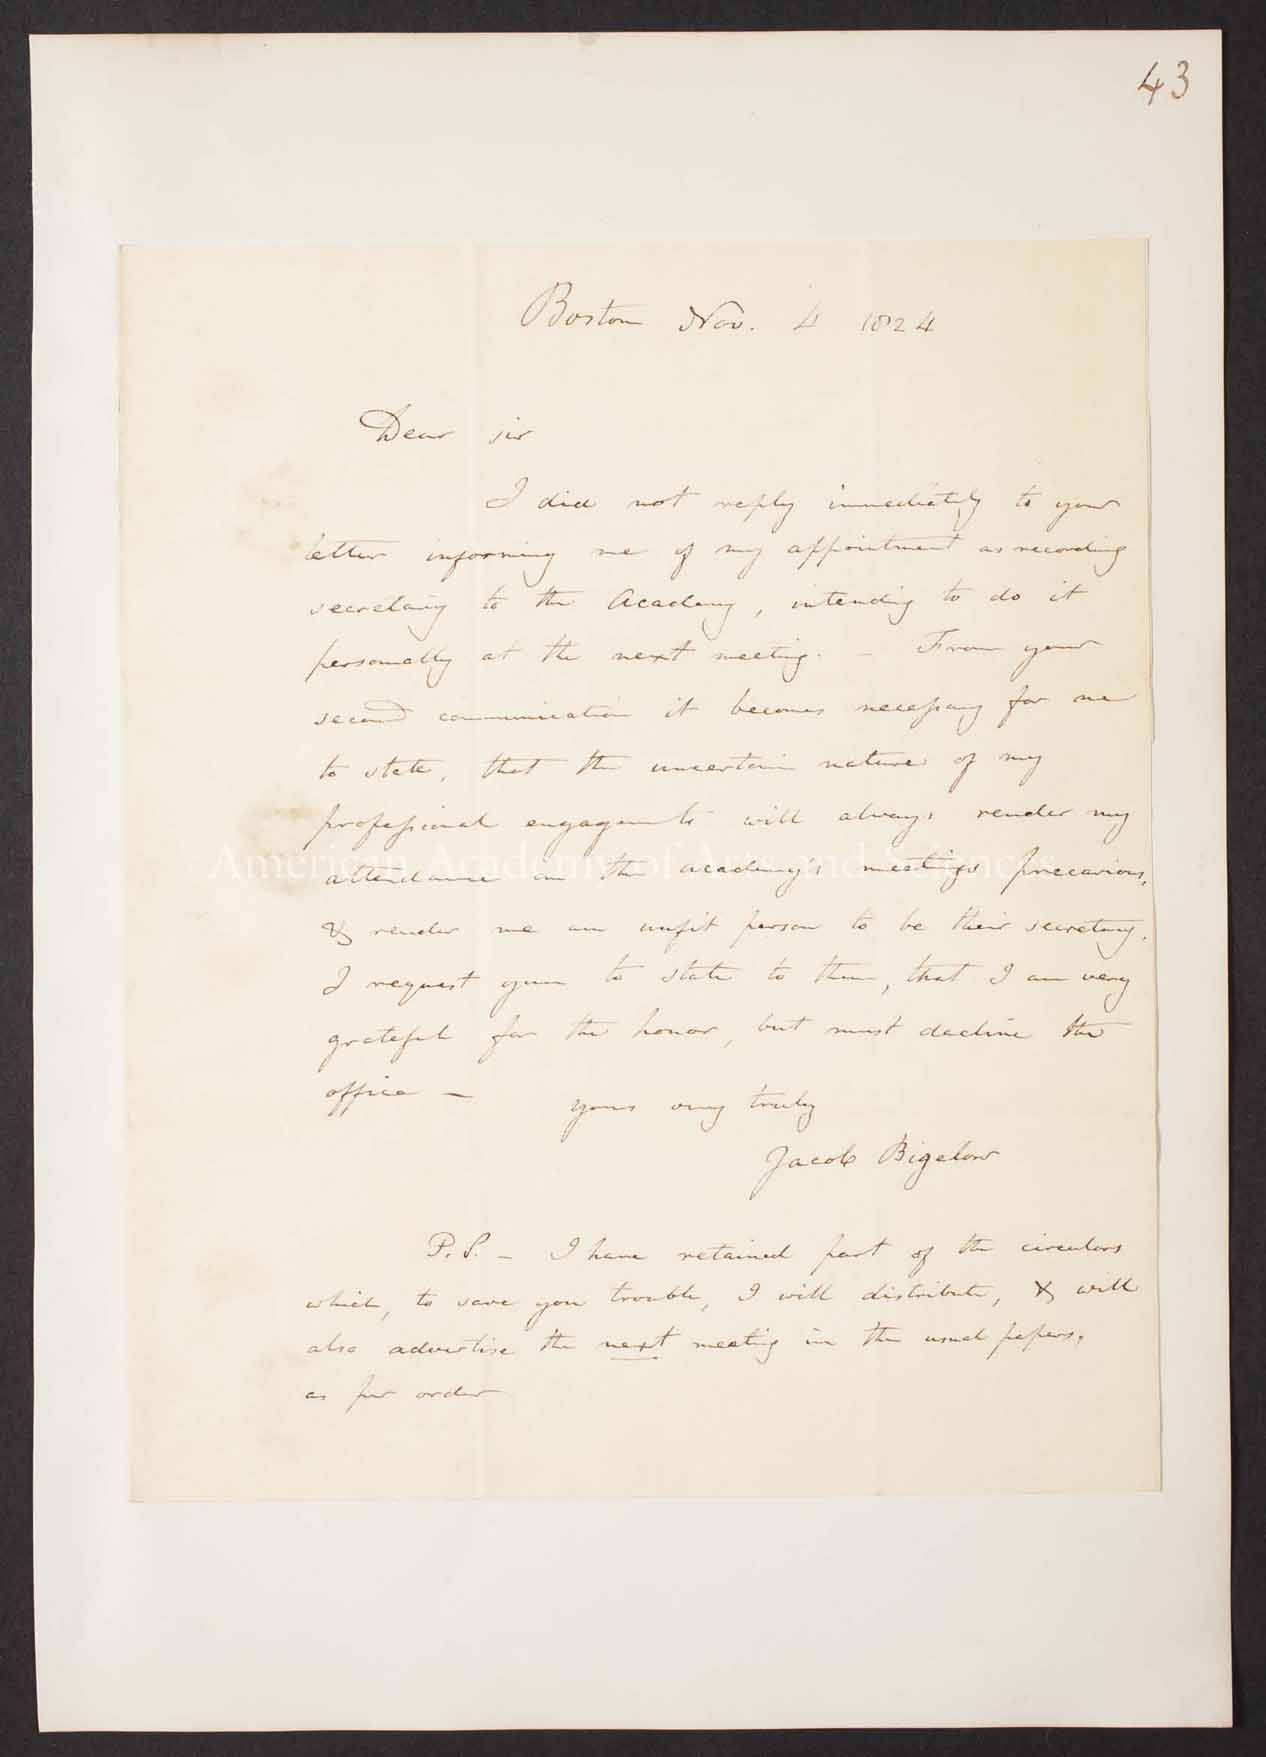 43
Boston Nov. 4 1824
Dear sir
I did not reply immediately to your
letter informing me of my appointment as recording
secretary to the Academy, intending to do it
personally at the next meeting. – From your
second communication it becomes necessary for me
to state, that the uncertain nature of my
professional engagements will always render my
American Academy of Arts and Sciences
attendance on the academy's meetings precarious,
& render me an unfit person to be their secretary.
I request you to state to them, that I am very
grateful for the honor, but must decline the
office –
yours very truly
Jacob Bigelow
P.S. – I have retained part of the circulars
which, to save you trouble, I will distribute, & will
also advertise the next meeting in the usual papers,
as per order